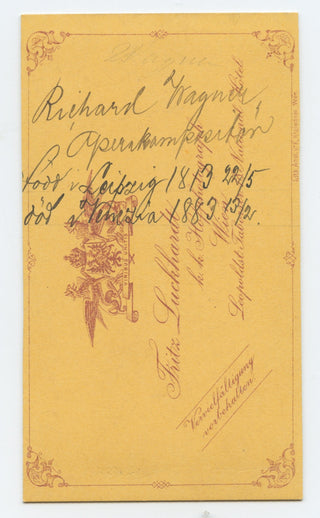 Wagner
Richard Wagner,
Operakompositör
född i Leipzig 1813 22/5
död i Venezia 1883 13/2.
Fritz Luckhardt
k. k. Hof-Photograph
Wien
Leopoldst. Taborstr. National Hôtel
Vervielfältigung
vorbehalten